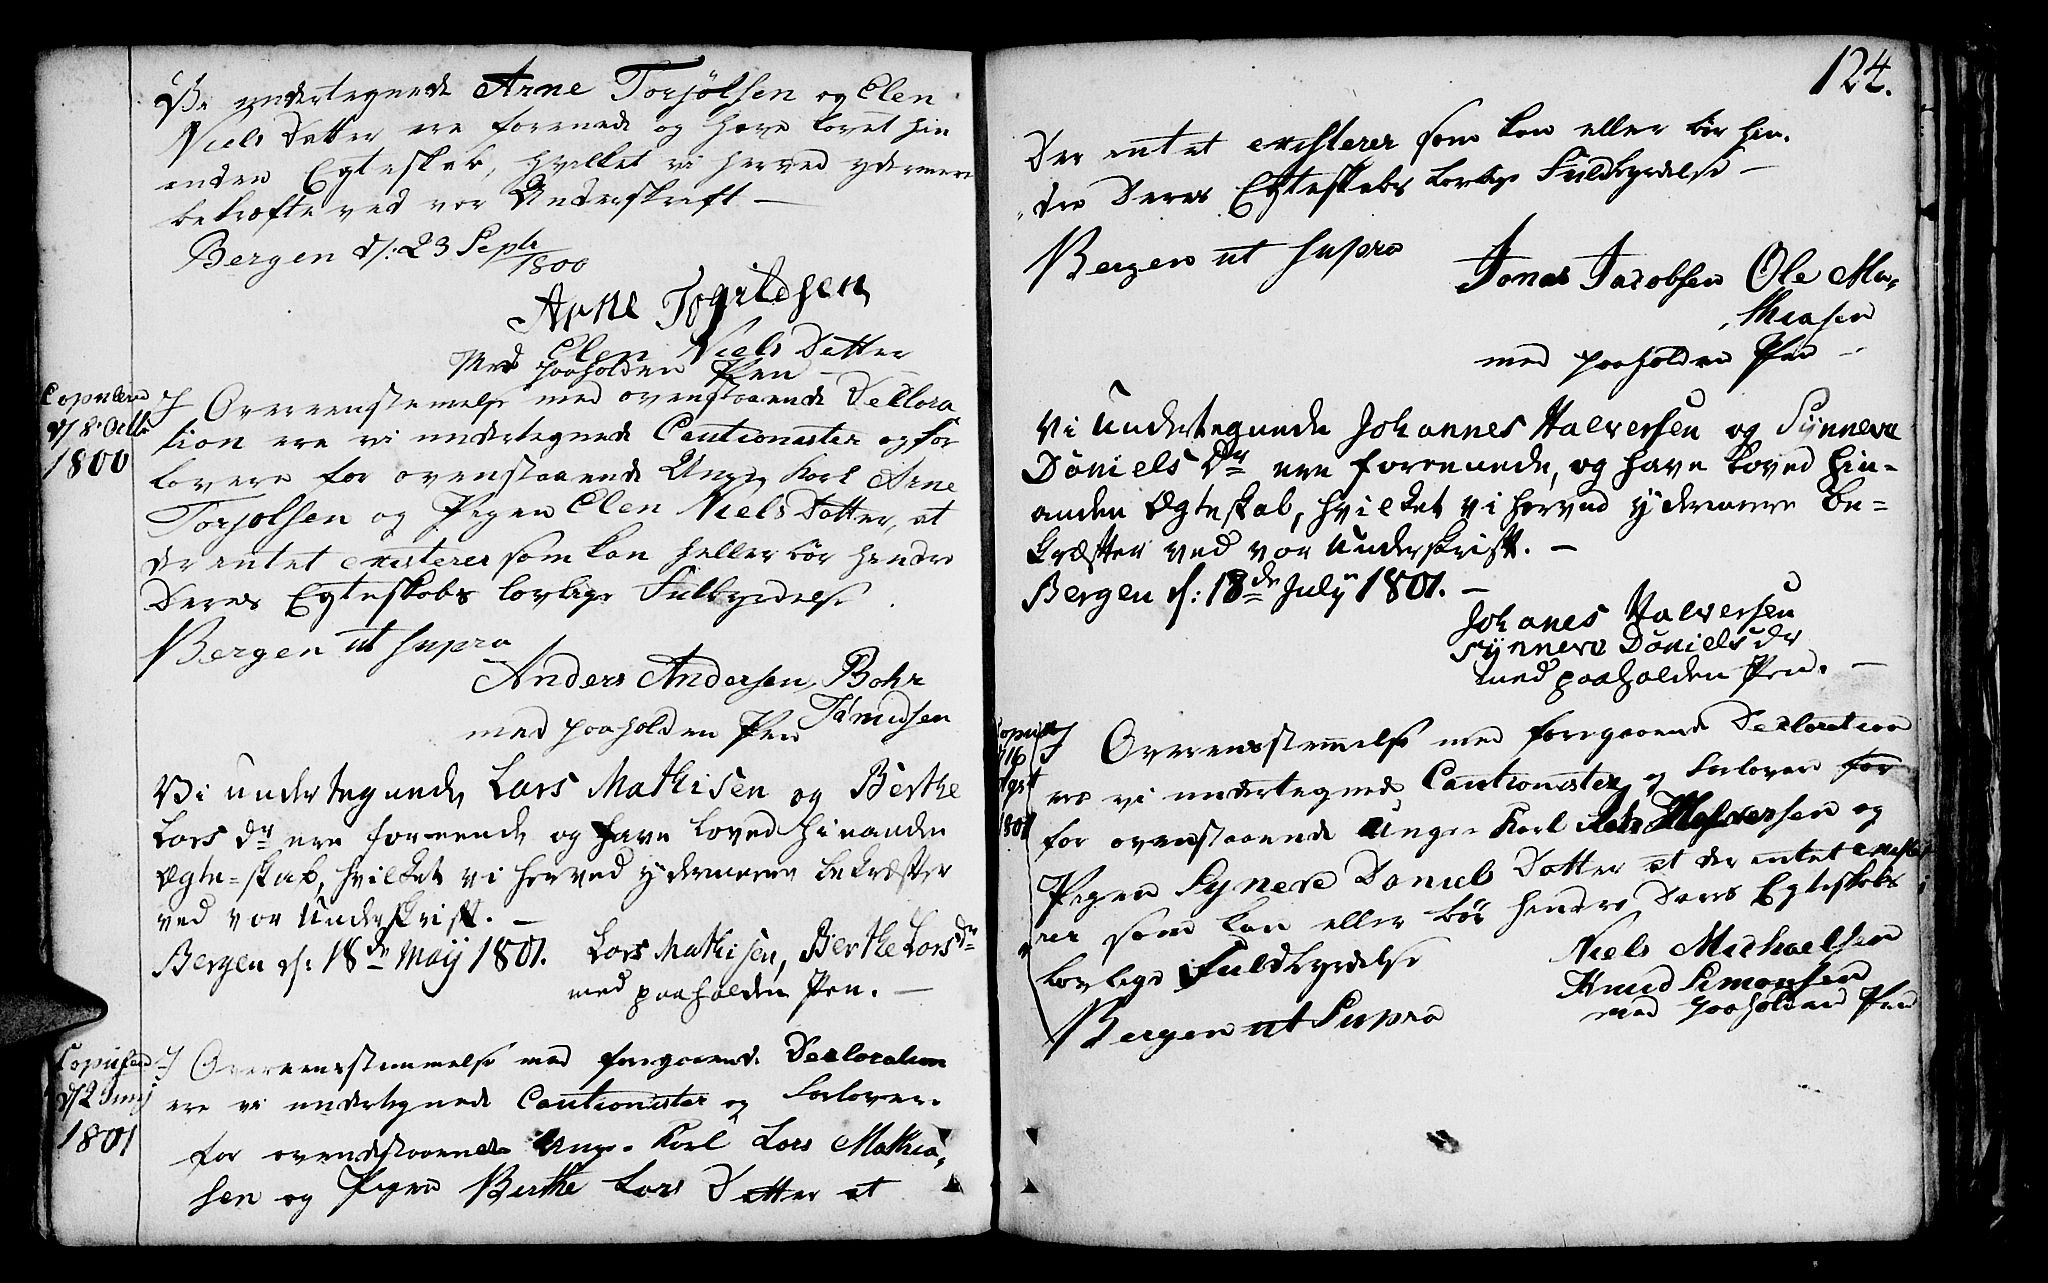 Vi undertegnede Arne Torjølsen og Elen
Niels Datter ere forenede og have lovet hin
anden Egteskab, hvilket vi herved ydermere
bekræfte ved vor Underskreft —
Bergen d/: 23 Septr
1800
Arne
Elen Niels Datter
Med paaholden Pen
Copulered
d/ 8 Octb
1800
I Overeenstemelse med ovenstaaende Declora
tion ere vi undertegnede Cautionister og for
lovere for ovenstaaende Unge Karl Arne
Torjolsen og Pigen Elen Niels Datter, at
der intet existerer som kan heller bör hindre
Deres Egteskabs lovlige Fulbyrdelse
Bergen ut supra
Anders Andersen, Bohr
med paaholden Pen
Vi undertegnede Lars Mathisen og Berthe
Lars dr ere foreende og have loved hinanden
Ægte-skab, hvilket vi herved ydermeere bekræfter
ved vor Underskrift. —
Bergen d: 18de Maij 1801. Lars Mathisen, Berthe Lars dr
med paaholden Pen. —
Copulered
d/ 2 Junij
1801
I Overeensstemmelse med foregaaende Decloration
ere vi undertegnede Cautionister og Forlovere
for ovenstaaende Unge Karl Lars Mathia,
sen og Pigen Berthe Lars Datter at
124.
Der intet existerer som kan eller bör hin,
dre Deres Egteskabs lovlige Fuldbyrdelse —
Bergen ut supra
Jonas Jacobsen Ole Ma,
thiasen
med paaholden Pen —
Vi Undertegnende Johannes Halversen og Synneve
Daniels Dr ere foreenende, og have loved hin-
anden Ægteskab, hvilket vi herved ydermeere be-
kræfter ved vor Underskrift. —
Bergen d: 18de Julij 1801. —
Johanes Halversen
Synneve Daniels dr
med paaholden Pen. —
16
1801
I Overensstemelse med foregaaende Decloration
ere vi undertegnede Cautionister og Forlovere for
for ovenstaaende Unge Karl Halversen og
Pigen Syneve Daniels Datter at der intet existe
rer som kan eller bör hindre Deres Egteskabs
lovlige Fuldbyrdelse
Niels Michaelsen
Knud Simonsen
med paaholden Pen
Bergen ut Supra